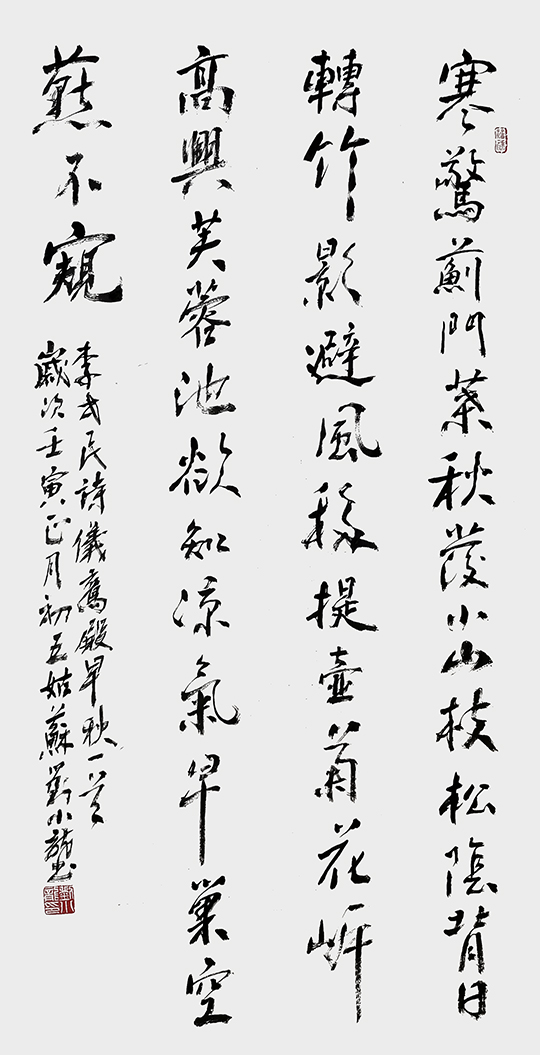 寒驚薊門葉秋發小山枝松陰背日
轉竹影避風移提壺菊花岸
高興芙蓉池欲知涼氣早巢空
燕不窺
李世民詩儀鸞殿早秋一首
歲次壬寅正月初五姑蘇鄭小龍書